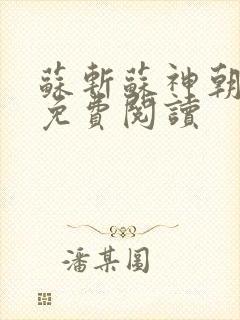 蘇斬蘇神朝
免費閱讀
潘某圓